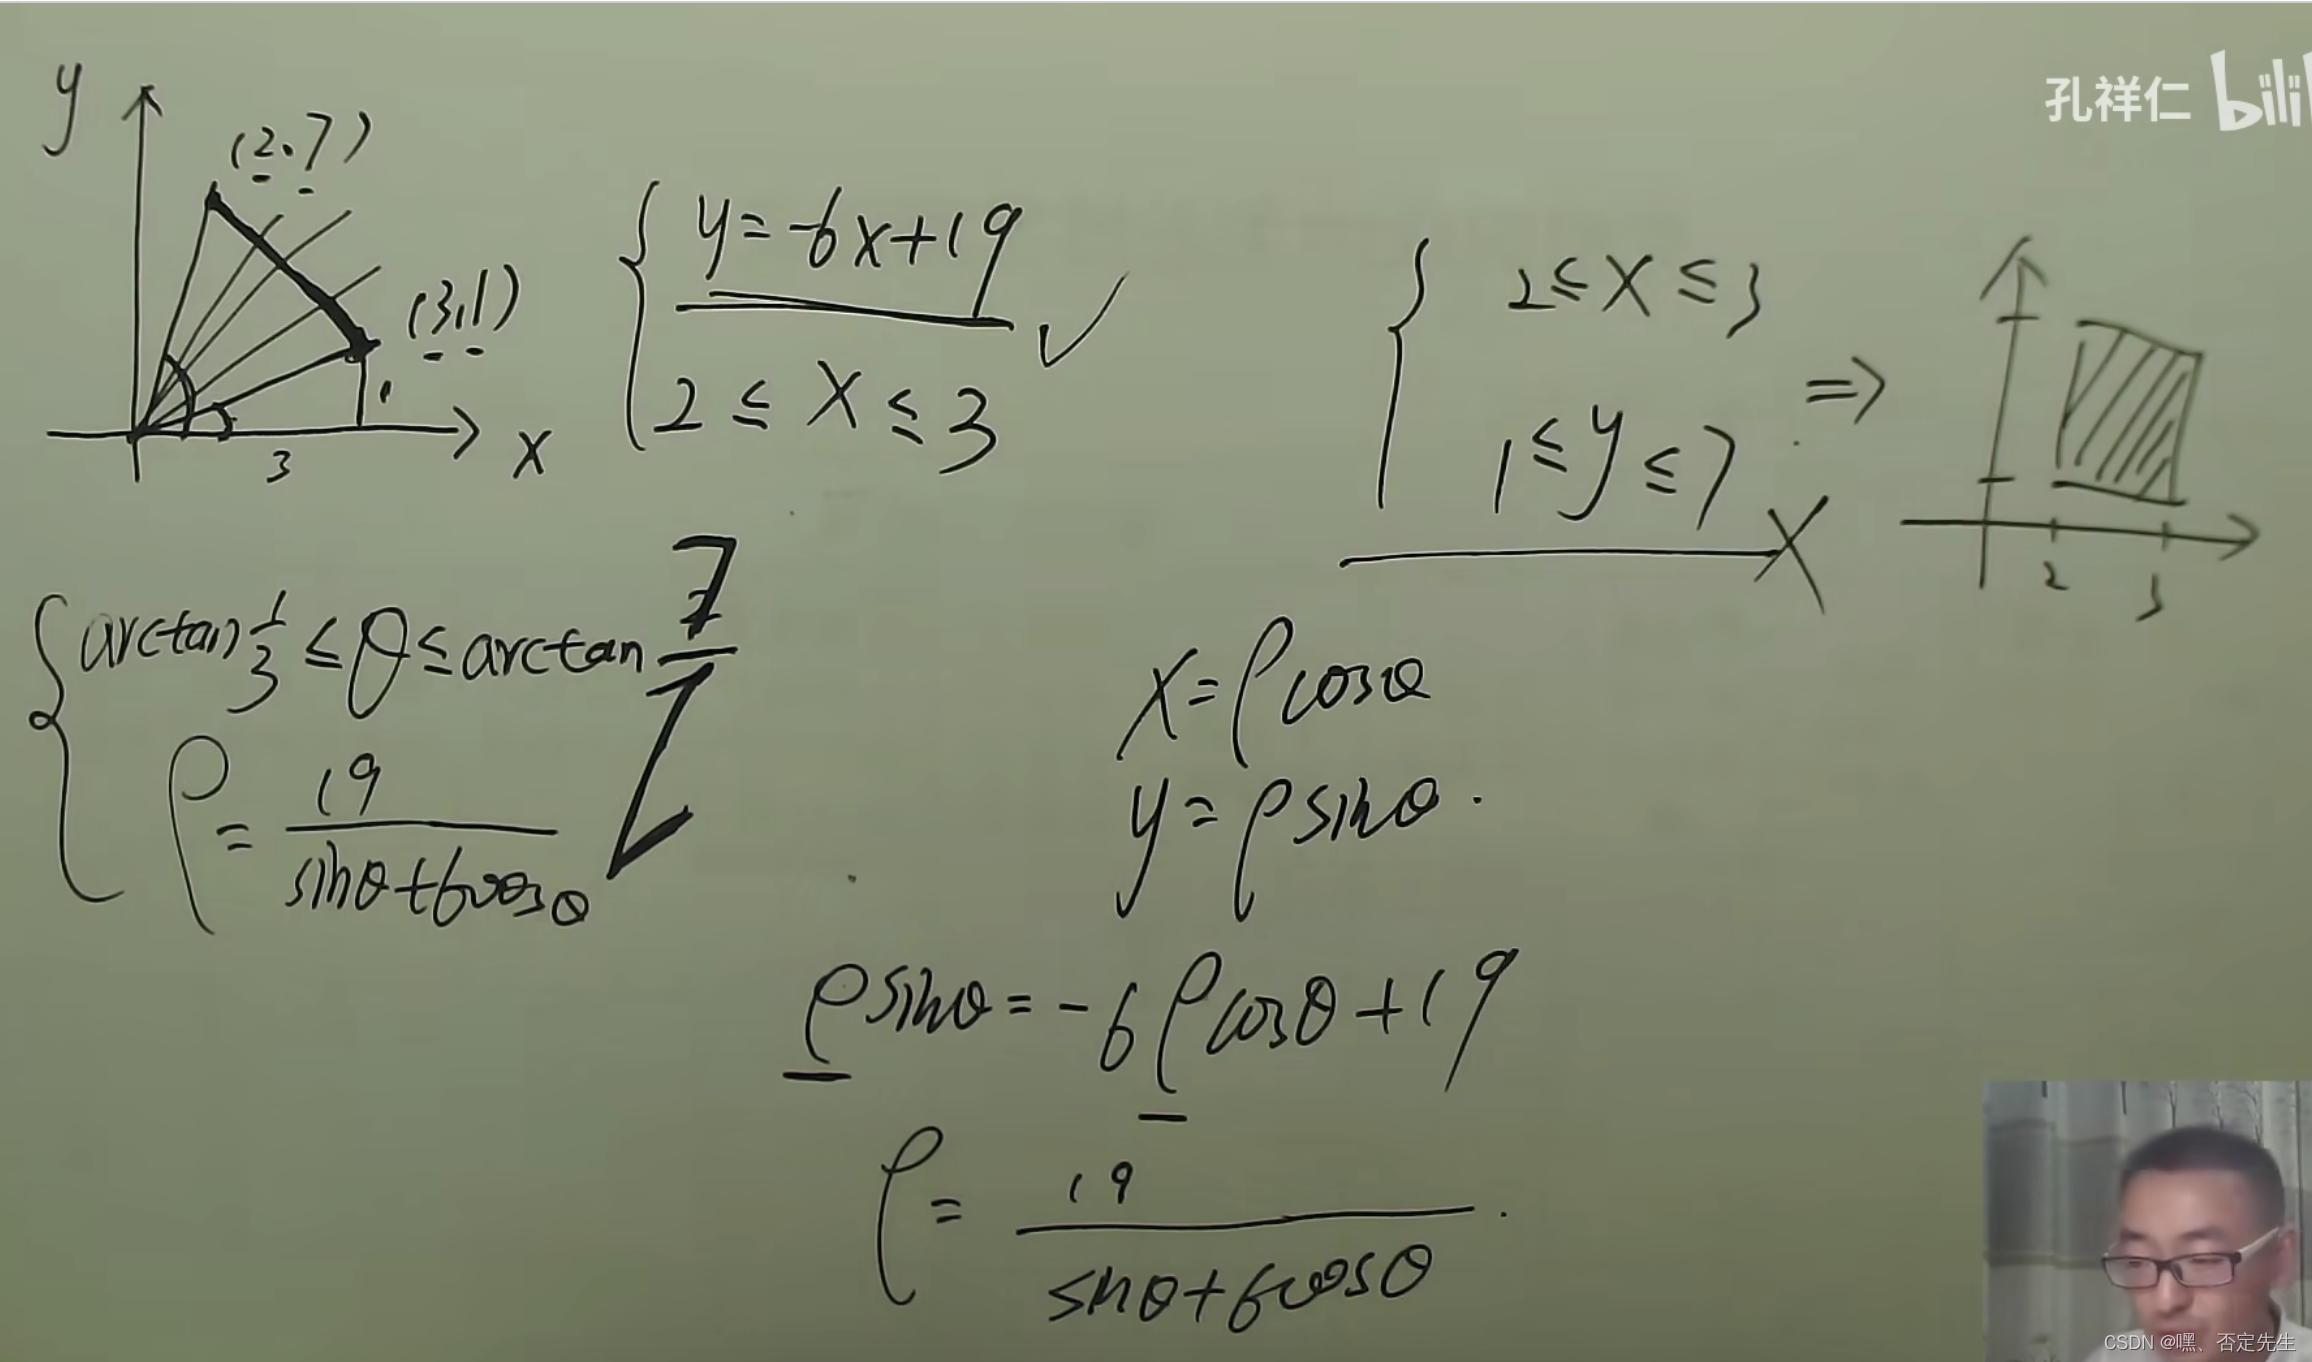 孔祥仁 bilil
y
(2.7)
(3,1)
1
3
x
y=-6x+19
2≤x≤3
2≤x≤3
1≤y≤7
⇒
2 3
arctan 1/3 ≤θ≤ arctan 7/2
ρ = 19/(sinθ+6cosθ)
x=ρcosθ
y=ρsinθ.
ρsinθ=-6ρcosθ+19
ρ = 19/(sinθ+6cosθ).
CSDN @嘿、否定先生